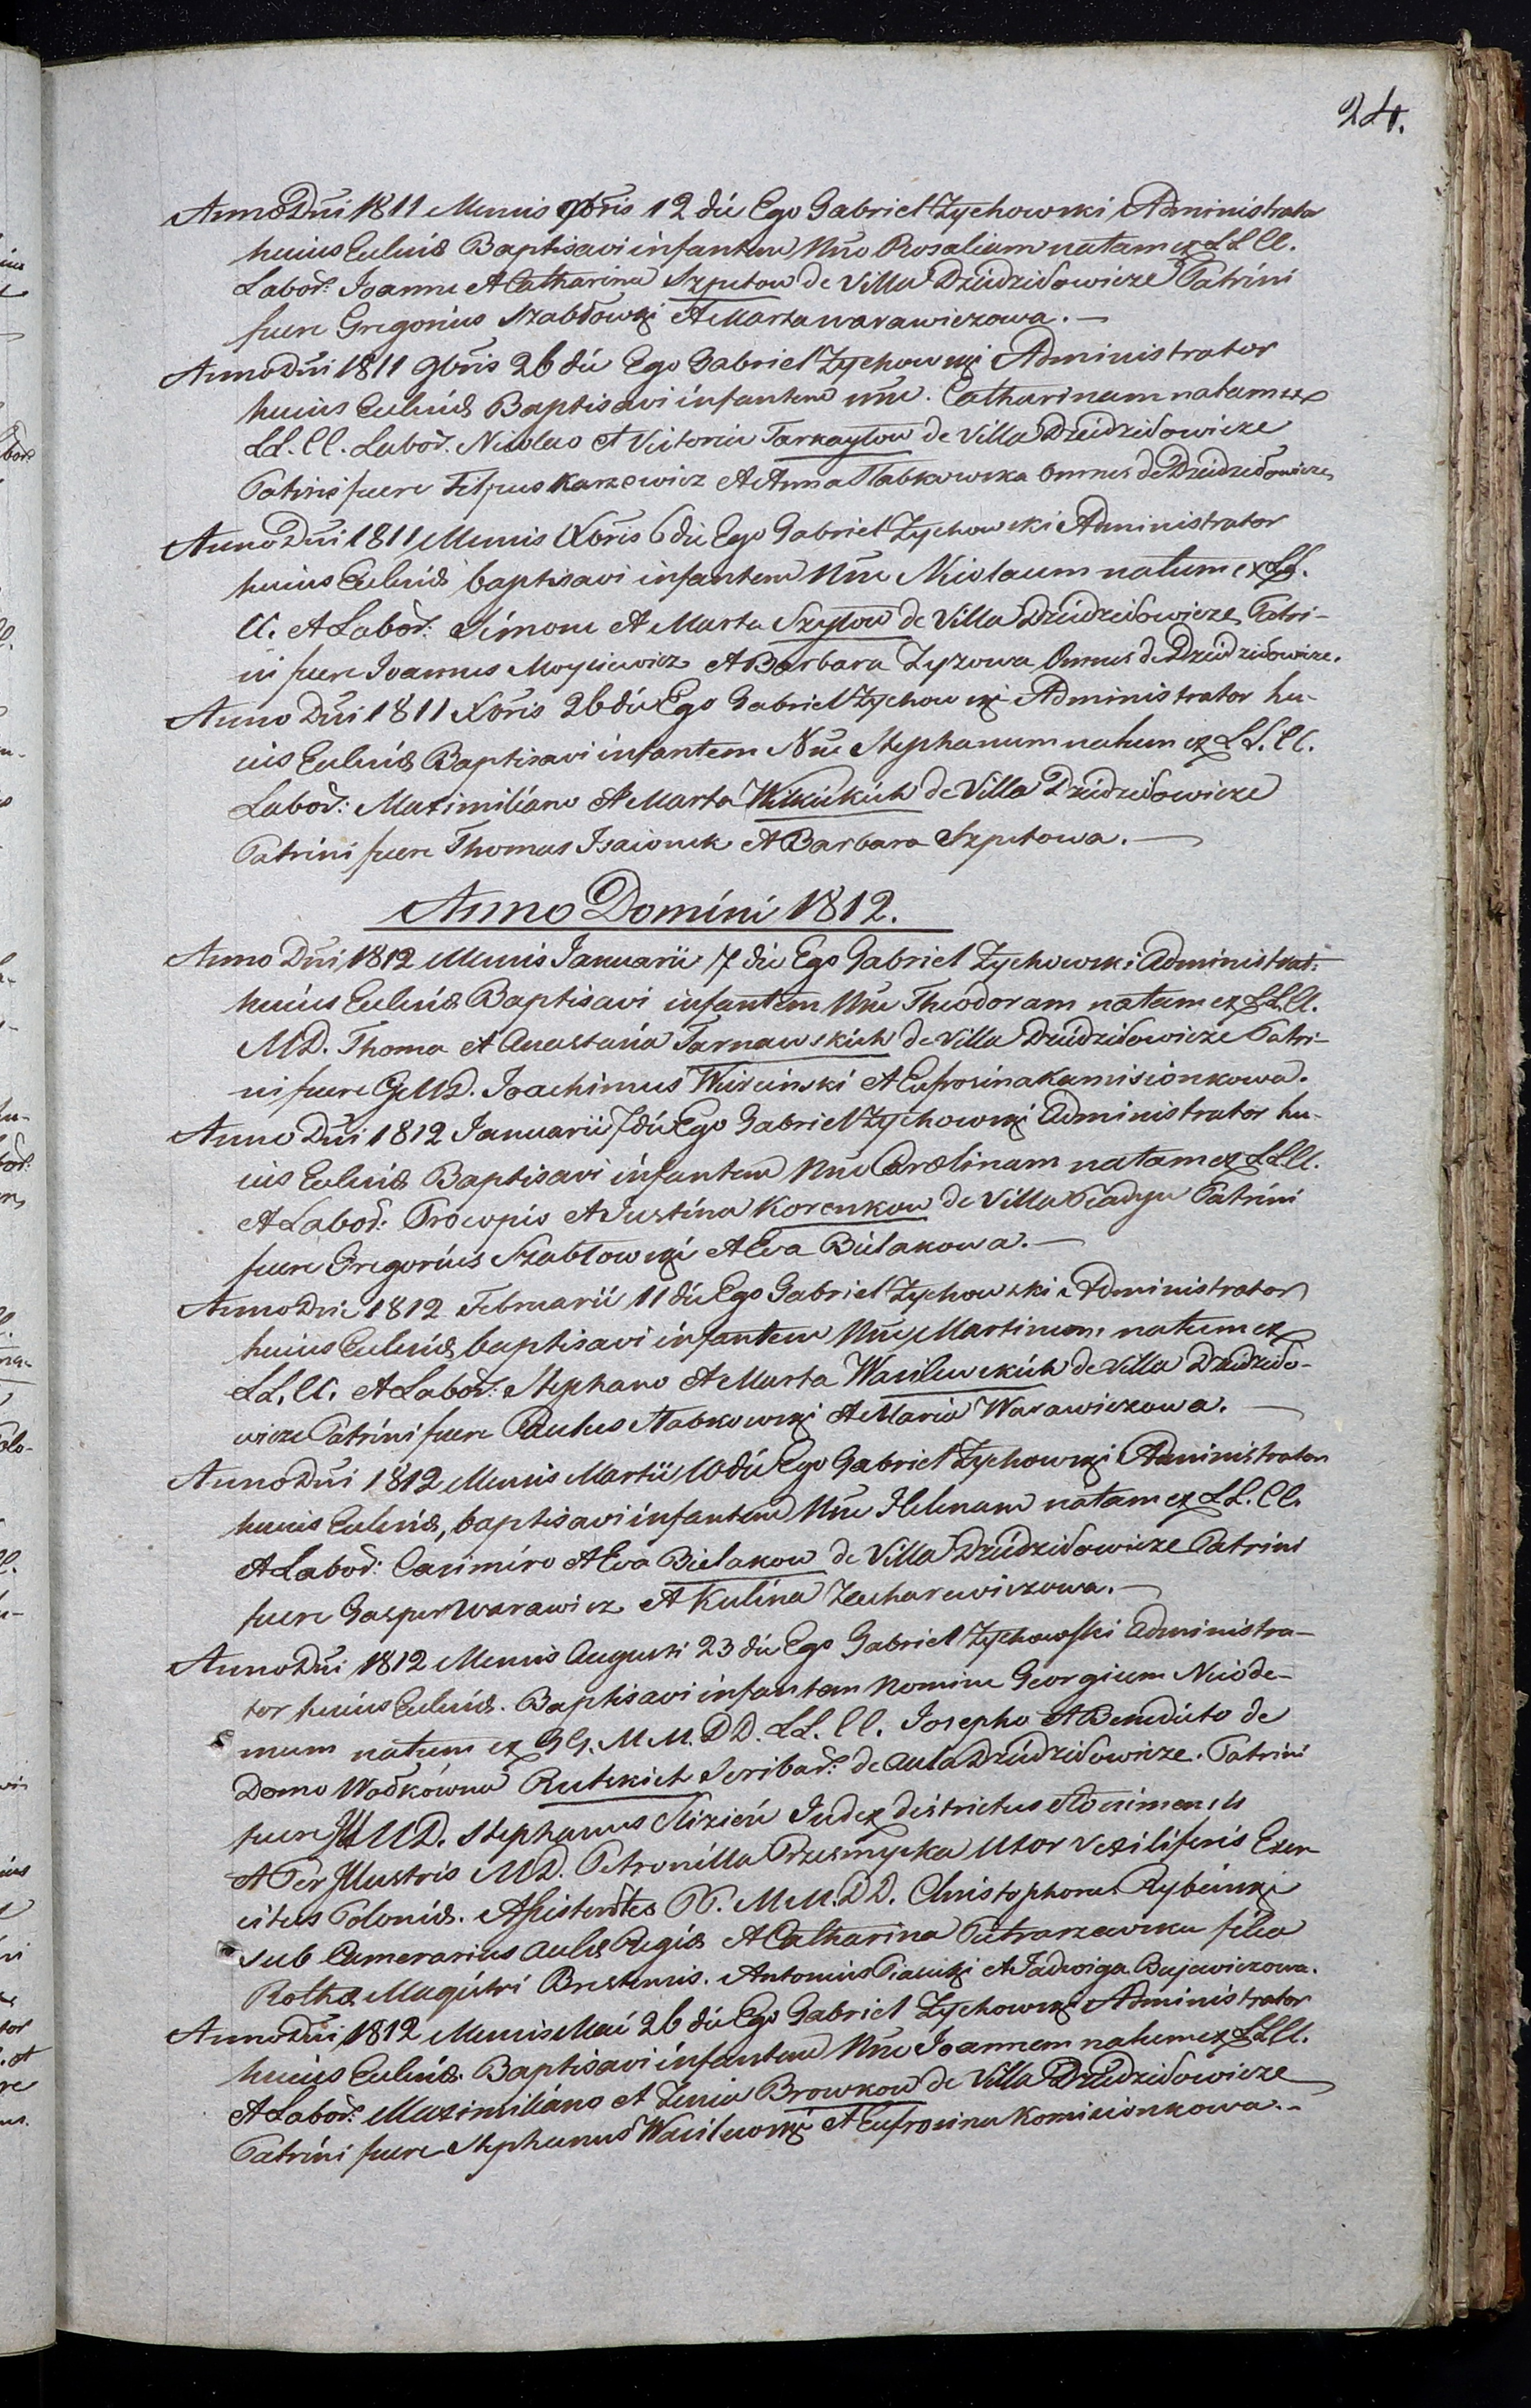 24.
Anno Dni 1811 Mensis 9bris 12 die Ego Gabriel Zychowski Administrator
huius Eccłesiæ Baptisavi infantem Nne Rosaliam natam ex LL CC.
Labor: Joanne et Catharina Szpetow de Villa Dziedziłowicze Patrini
fuere Gregorius Szabłowski et Marta warawiczowa. —
Anno Dni 1811 9bris 26 die Ego Gabriel Zychowski Administrator
huius Ecclesiæ Baptisavi infantem nne. Catharinam natam ex
LL. CC. Labor. Nicolao et Victoria de Villa Dziedziłowicze
Patrini fuere Filipus Karzewicz et Anna Słabkowska Omnes de Dziedziłowicze
Anno Dni 1811 Mensis Xbris 6 die Ego Gabriel Zychowski Administrator
huius Ecclesiæ baptisavi infantem Nne Nicolaum natum ex LL.
CC. et Labor: Simone et Marta Szyłow de Villa Dziedziłowicze Patri-
ni fuere Joannes Moysiewicz et Barbara Zyzowa Omnes de Dziedziłowicze.
Anno Dni 1811 Xbris 26 die Ego Gabriel Zychowski Administrator hu-
ius Ecclesiæ Baptisavi infantem Nne Stephanum natum ex LL. CC.
Labor: Maximiliano et Marta de Villa Dziedziłowicze
Patrini fuere Thomas Isaionek et Barbara Szpetowa. —
Anno Domini 1812.
Anno Dni 1812 Mensis Januarii 7 die Ego Gabriel Zychowski Administrat:
huius Ecclesiæ Baptisavi infantem Nne Theodoram natam ex LL CC.
MD. Thoma et Anastasia Tarnawskich de Villa Dziedziłowicze Patri-
ni fuere GMD. Joachimus et Eufrosina Kamisionkowa.
Anno Dni 1812 Januarii 7 die Ego Gabriel Zychowski Administrator hu-
ius Ecclesiæ Baptisavi infantem Nne Carolinam natam ex LL CC.
et Labor: Procopio et Justina Korenkow de Villa Patrini
fuere Gregorius Szabłowski et Eva Bielakowa. —
Anno Dni 1812 Februarii 11 die Ego Gabriel Zychowski Administrator
huius Ecclesiæ baptisavi infantem Nne Martinum natum ex
LL. CC. et Labor: Stephano et Marta Wasilewskich de Villa Dziedziło-
wicze Patrini fuere Paulus Słabkowski et Maria Warawiczowa. —
Anno Dni 1812 Mensis Martii 10 die Ego Gabriel Zychowski Administrator
huius Ecclesiæ, baptisavi infantem Nne Helenam natam ex LL. CC.
et Labor: Casimiro et Eva Bielakow de Villa Dziedziłowicze Patrini
fuere Gasper Warawicz et Kulina Zacharewiczowa. —
Anno Dni 1812 Mensis Augusti 23 die Ego Gabriel Zychowski Administra-
tor huius Ecclesiæ. Baptisavi infantem Nomine Georgium Nicode-
mum natum ex GG. MM. DD. LL. CC. Josepho et Benedicta de
Domo Wołkówna Rutskich Scribar: de Aula Dziedziłowicze. Patrini
fuere Ill MD. Stephanus Slizień Judex districtus Słonimensis
et Per Illustris MD. Petronilla Przesmycka Uxor Vexiliferis Exer-
citus Poloniæ. Assistentes PP. MM. DD. Christophorus Rybiński
Sub Camerarius Aulæ Regiæ et Catharina filia
Rothæ Magistri Brestensis. Antonius Piasecki et Jadwiga Bujewiczowa.
Anno Dni 1812 Mensis Mai 26 die Ego Gabriel Zychowski Administrator
huius Ecclesiæ. Baptisavi infantem Nne Joannem natum ex LL CC.
et Labor: Maximiliano et Zenia Browkow de Villa Dziedziłowicze
Patrini fuere Stephanus Wasilewski et Eufrosina Komisionkowa. -